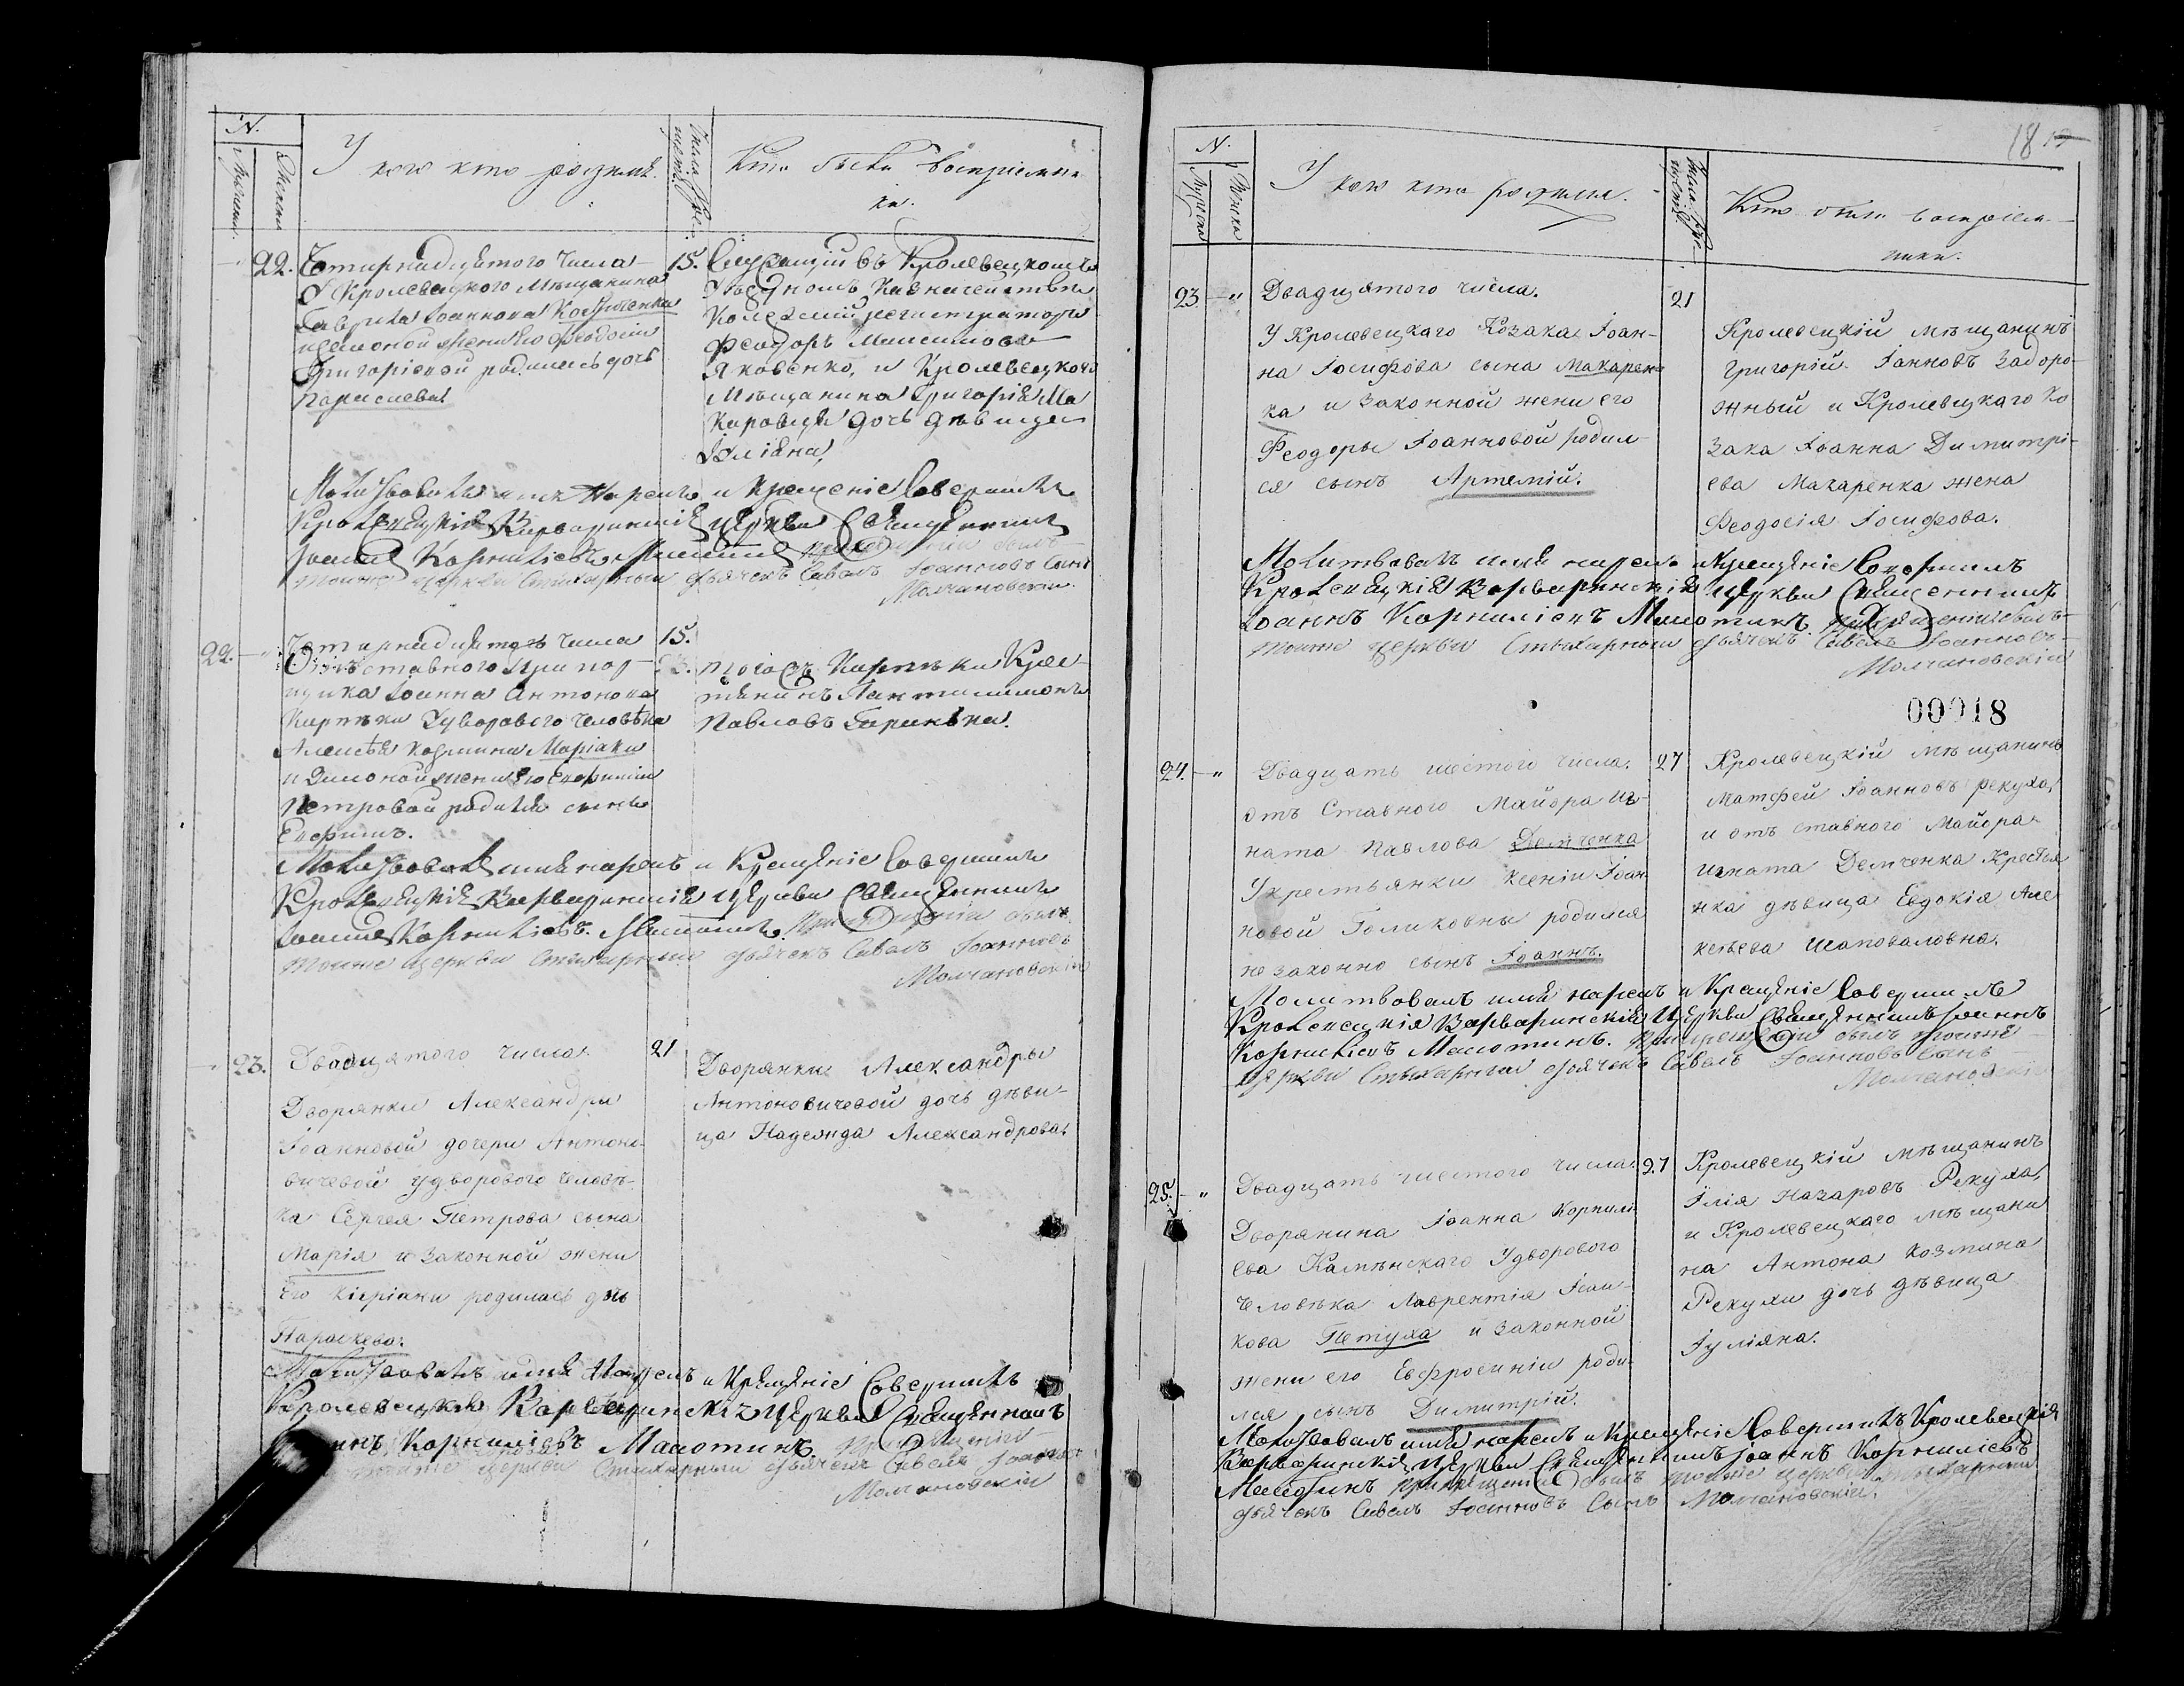 N.
Мужеска
Женска
У кого кто родился.
Числа Кре-
щенія
Кто были воспріемни-
ки.
22.
Четырнадцятого числа
15.
У Кролевецкого Мѣщанина
Гаврила Іоаннова
и законой жени его Феодосіи
Григоріевой родилась дочь
Параскева
Служащій въ Кролевецкомъ
Уѣздномъ Казначействѣ
Колежскій регистраторъ
Феодоръ Максимовъ
Яковенко, и Кролевецкого
Мѣщанина Григорія Ма
карова дочь дѣвица
Іуліана,
Молитвовалъ имя Нарекъ и Крещеніе Совершилъ
Кролевецкія Варваринскія Церкви Священникъ
Іоаннъ Корниліевъ Малютинъ при крещеніи былъ
тоиже церкви Стихарный дьячекъ Савелъ Іоанновъ Сынъ
Молчановскій.
22.
Четырнадцятогъ числа
15.
Отъставного Прапор-
щика Іоанна Антонова
Кирпѣки Удворового Человѣка
Алексѣя Козмина
и Законой жени его Евфиміи
Петровой родился сынъ
Евфимъ.
тогожъ Кирпѣки Крес-
тянинъ Пантилимонъ
Павловъ
Молитвовалъ имя нарекъ и Крещеніе Совершилъ
Кролевецкія Варваринскія церкви Священникъ
Іоаннъ Корниліевъ Малютинъ При крещеніи былъ
тоиже церкви Стихарный дьячекъ Савелъ Іоанновъ
Молчановскій
23.
Двадцятого числа.
21
Дворянки Александры
Іоанновой дочери Антоно-
вичевой Удворового Человѣ-
ка Сергея Петрова сына
Марія и Законной жени
его Киріаки родилась дочь
Параскева.
Дворянки Александры
Антоновичевой дочь дѣви-
ца Надежда Александрова.
Молитвовалъ имя Нарекъ и Крещеніе Совершилъ
Кролевецкія Варваринскія Церкви Священникъ
Корниліевъ Малютинъ. При крещеніи
тоиже церкви Стихарный дьячекъ Савелъ Іоанновъ
Молчановскій
18
N.
Мужеска
Женска
У кого кто родился.
Числа Кре-
щенія
Кто были воспріем-
ники.
23.
Двадцятого числа.
21
У Кролевецкаго Козака Іоан-
на Іосифова сына Макарен-
ка и Законной жени его
Феодоры Іоанновой родил-
ся сынъ Артемій.
Кролевецкій мѣщанинъ
Григорій Іанновъ Задоро-
жный и Кролевецкаго Ко
зака Іоанна Димитрі-
ева Макаренка жена
Феодосія Іосифова.
Молитвовалъ имя нарекъ и Крещеніе Совершилъ
Кролевецкія Варваринскія Церкви Священникъ
Іоаннъ Корниліевъ Малютинъ. при крещеніи былъ
тоиже церкви Стихарный дьячекъ Савелъ Іоанновъ
Молчановскій
00018
24.
Двадцать шестого числа.
27
отъ Ставного Майора Иг-
ната Павлова Демченка
Укрестьянки Ксеніи Іоан
новой Голиковны родился
незаконно сынъ Іоаннъ.
Кролевецкій мѣщанинъ
Матфей Іоанновъ рекуха,
и отъ ставного Майора
Игната Демченка Крестья
нка дѣвица Евдокія Але
ксѣева Шаповаловна.
Молитвовалъ имя нарекъ и Крещеніе Совершилъ
Кролевецкія Варваринскія Церкви Священникъ Іоаннъ
Корниліевъ Малютинъ. При крещеніи былъ тоиже
церкви Стихарный дьячекъ Савелъ Іоанновъ Сынъ
Молчановскій
25.
Двадцать шестого числа.
27
Дворянина Іоанна Корнилі
ева Каменскаго Удворового
Человѣка Лаврентія Исаи-
кова Петуха и Законной
жени его Евфросиніи роди-
лся сынъ Димитрій.
Кролевецкій мѣщанинъ
Илія Назаровъ Рекуха,
и Кролевецкаго мѣщани
на Антона Козмина
Рекухи дочь дѣвица
Іуліяна.
Молитвовалъ имя нарекъ и Крещеніе Совершилъ Кролевецкія
Варваринскія Церкви Священникъ Іоаннъ Корниліевъ
Малютинъ при крещеніи былъ тоиже церкви Стихарный
дьячекъ Савелъ Іоанновъ Сынъ Молчановскій.